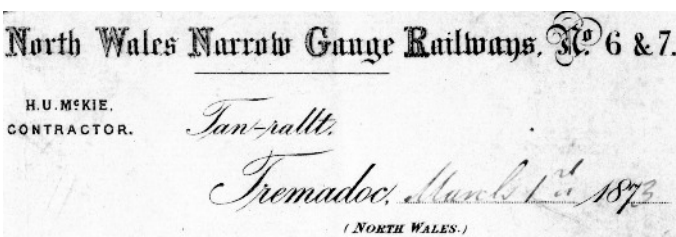 North Wales Narrow Gauge Railways. No. 6 & 7.
H. U. McKIE,
CONTRACTOR.
Tan-rallt.
Tremadoc, March 1st 1873
(NORTH WALES.)